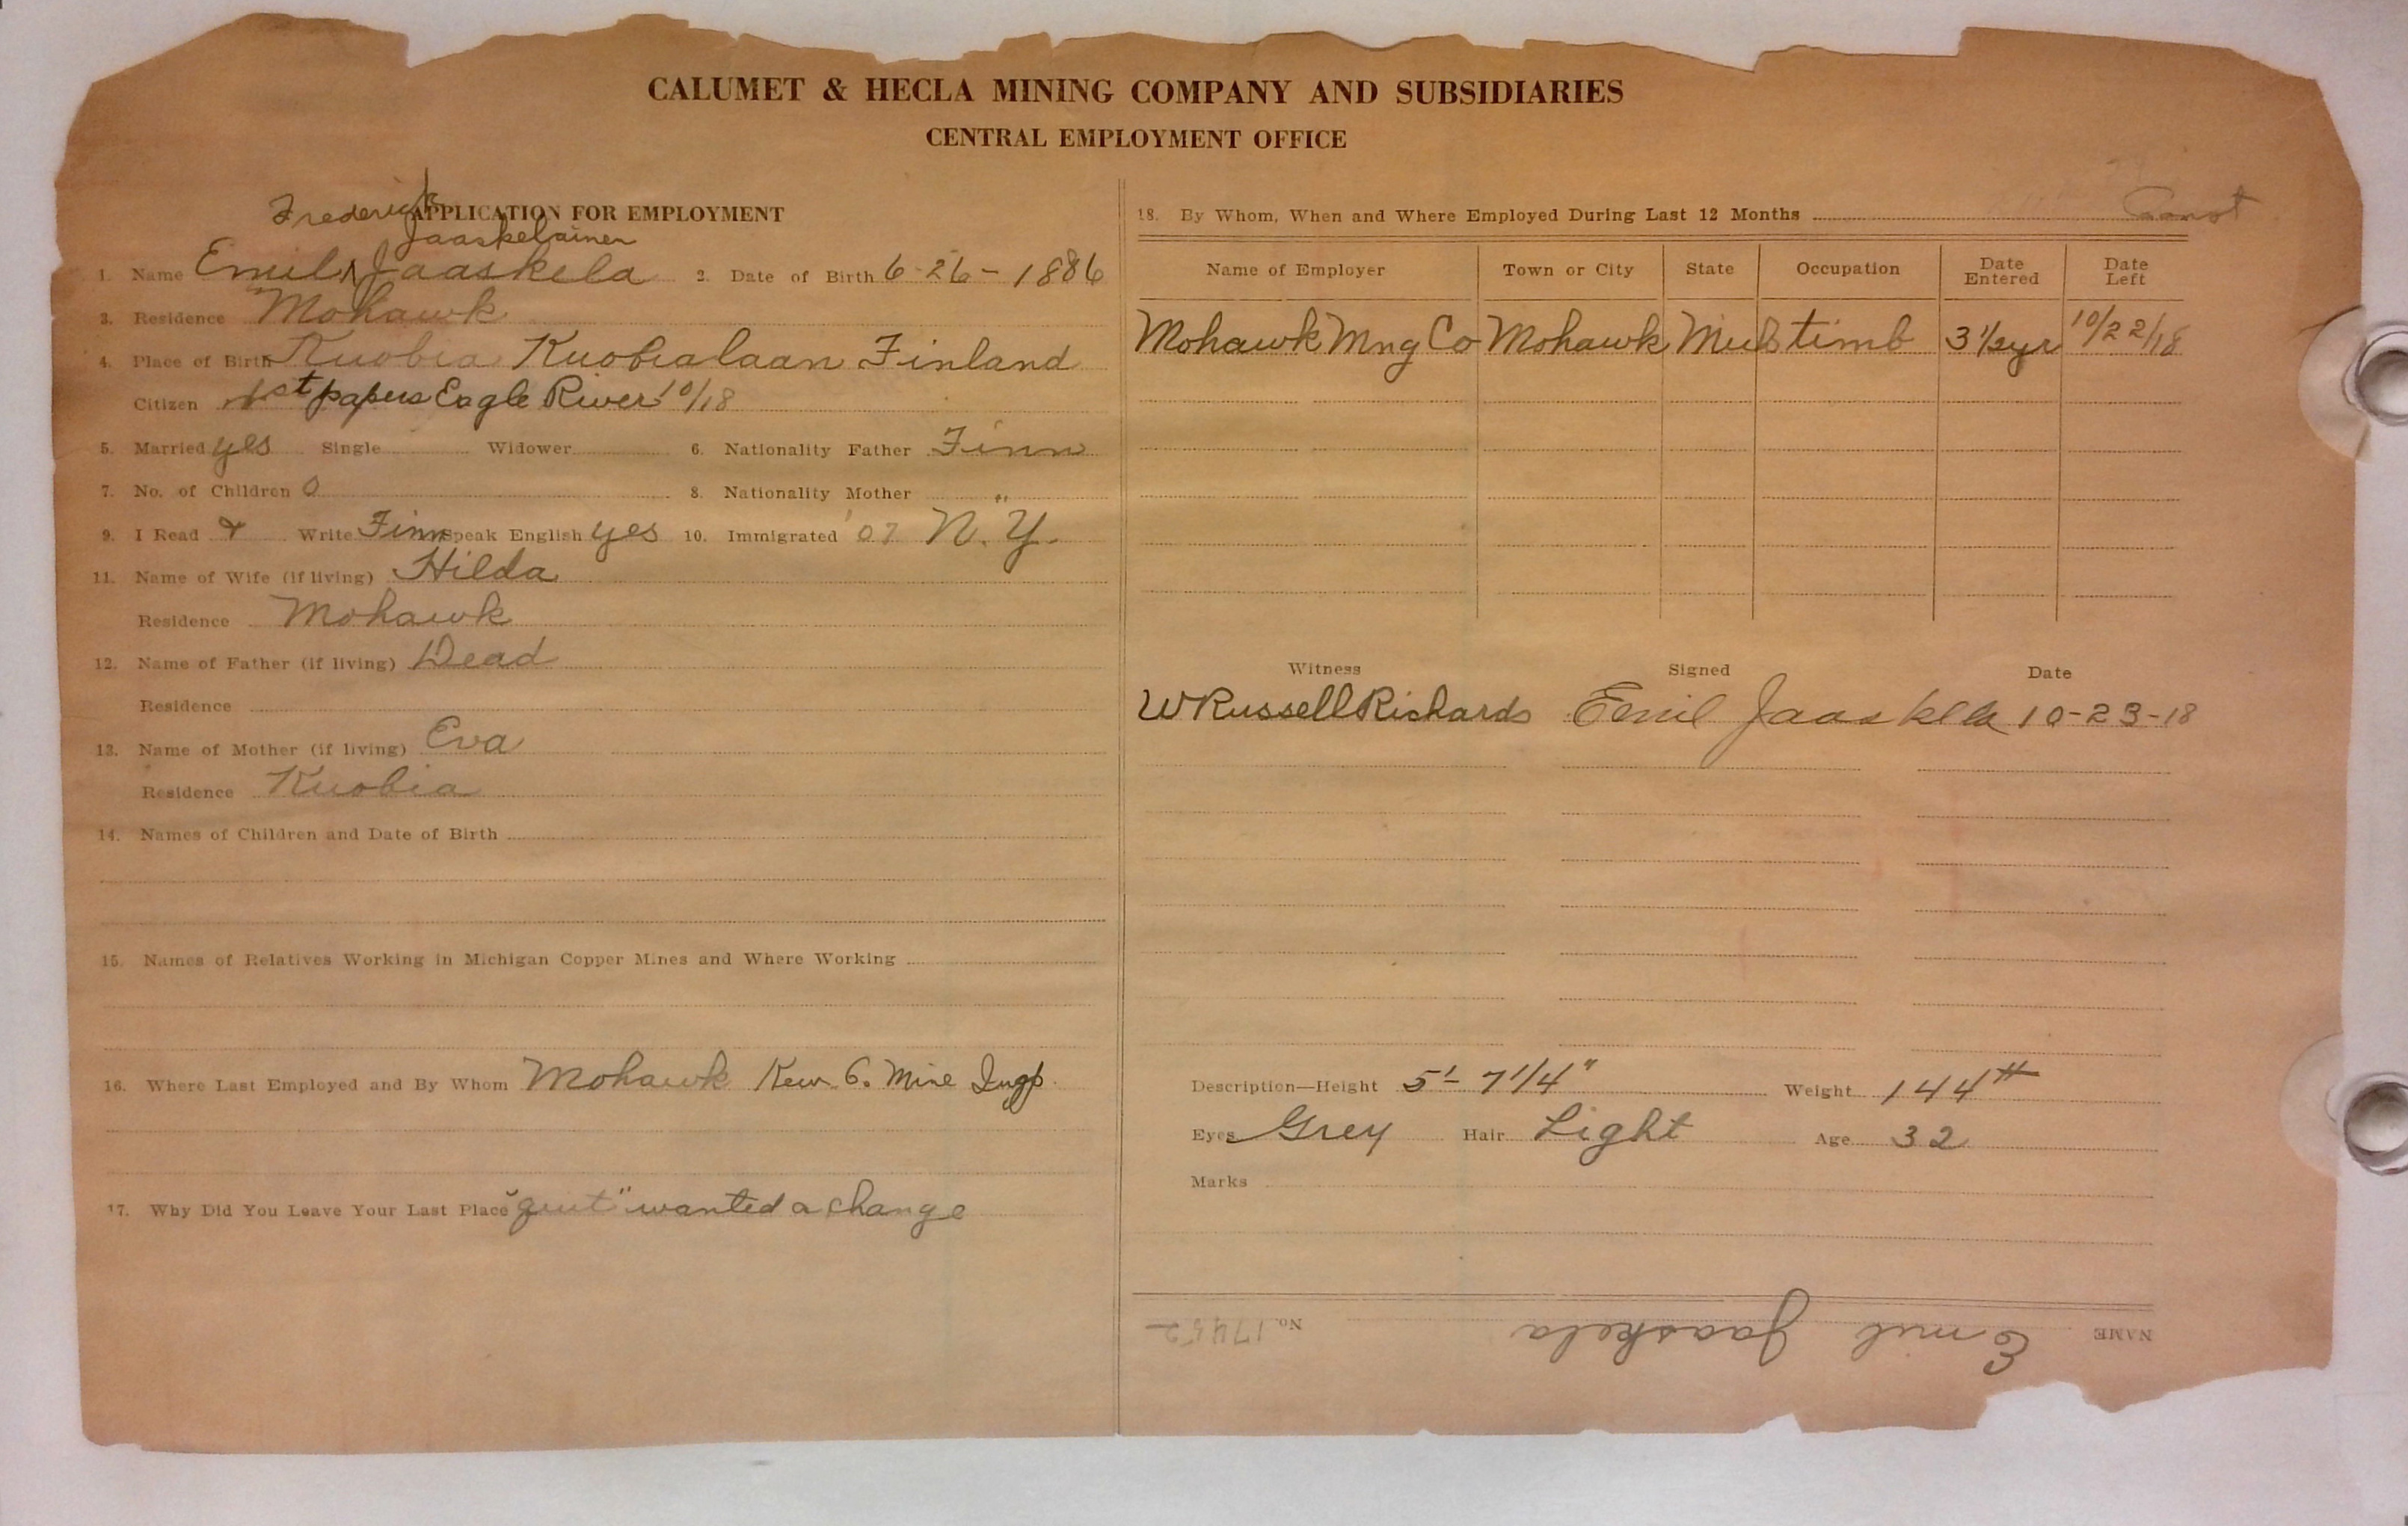 CALUMET & HECLA MINING COMPANY AND SUBSIDIARIES
CENTRAL EMPLOYMENT OFFICE
APPLICATION FOR EMPLOYMENT
Frederick
Jaaskelainen
1. Name Emil ʌ Jaaskela 2. Date of Birth 6-26-1886
3. Residence Mohawk
4. Place of Birth Kuobia Kuobialaan Finland
Citizen 1st papers Eagle River 10/18
5. Married yes Single Widower 6. Nationality Father Finn
7. No. of Children 0 8. Nationality Mother "
9. I Read & Write Finn Speak English yes 10. Immigrated '07 N.Y.
11. Name of Wife (if living) Hilda
Residence Mohawk
12. Name of Father (if living) Dead
Residence
13. Name of Mother (if living) Eva
Residence Kuobia
14. Names of Children and Date of Birth
15. Names of Relatives Working in Michigan Copper Mines and Where Working
16. Where Last Employed and By Whom Mohawk Kew. Co. Mine Insp.
17. Why Did You Leave Your Last Place "quit" wanted a change
18. By Whom, When and Where Employed During Last 12 Months
Name of Employer Town or City State Occupation Date Entered Date Left
Mohawk Mng Co Mohawk Mich timb 3 1/2 yr 10/22/18
Witness Signed Date
W Russell Richards Emil Jaaskela 10-23-18
Description—Height 5'- 7 1/4" Weight 144#
Eyes Grey Hair Light Age 32
Marks
NAME Emil Jaaskela No. 17452